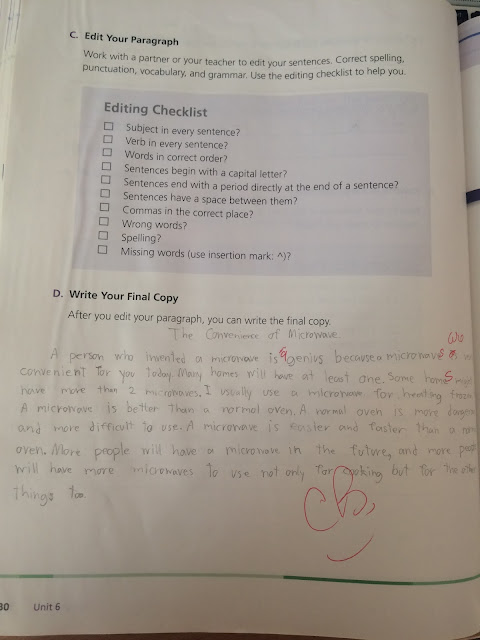 C. Edit Your Paragraph
Work with a partner or your teacher to edit your sentences. Correct spelling,
punctuation, vocabulary, and grammar. Use the editing checklist to help you.
Editing Checklist
Subject in every sentence?
Verb in every sentence?
Words in correct order?
Sentences begin with a capital letter?
Sentences end with a period directly at the end of a sentence?
Sentences have a space between them?
Commas in the correct place?
Wrong words?
Spelling?
Missing words (use insertion mark: ^)?
D. Write Your Final Copy
After you edit your paragraph, you can write the final copy.
The Convenience of Microwave.
A person who invented a microwave is a genius because a microwave
convenient for you today. Many homes will have at least one. Some homes
have more than 2 microwaves. I usually use a microwave for heating
A microwave is better than a normal oven. A normal oven is more
and more difficult to use. A microwave is easier and faster than a
oven. More people will have a microwave in the future, and more
will have more microwaves to use not only for cooking but for the other
things too.
30 Unit 6